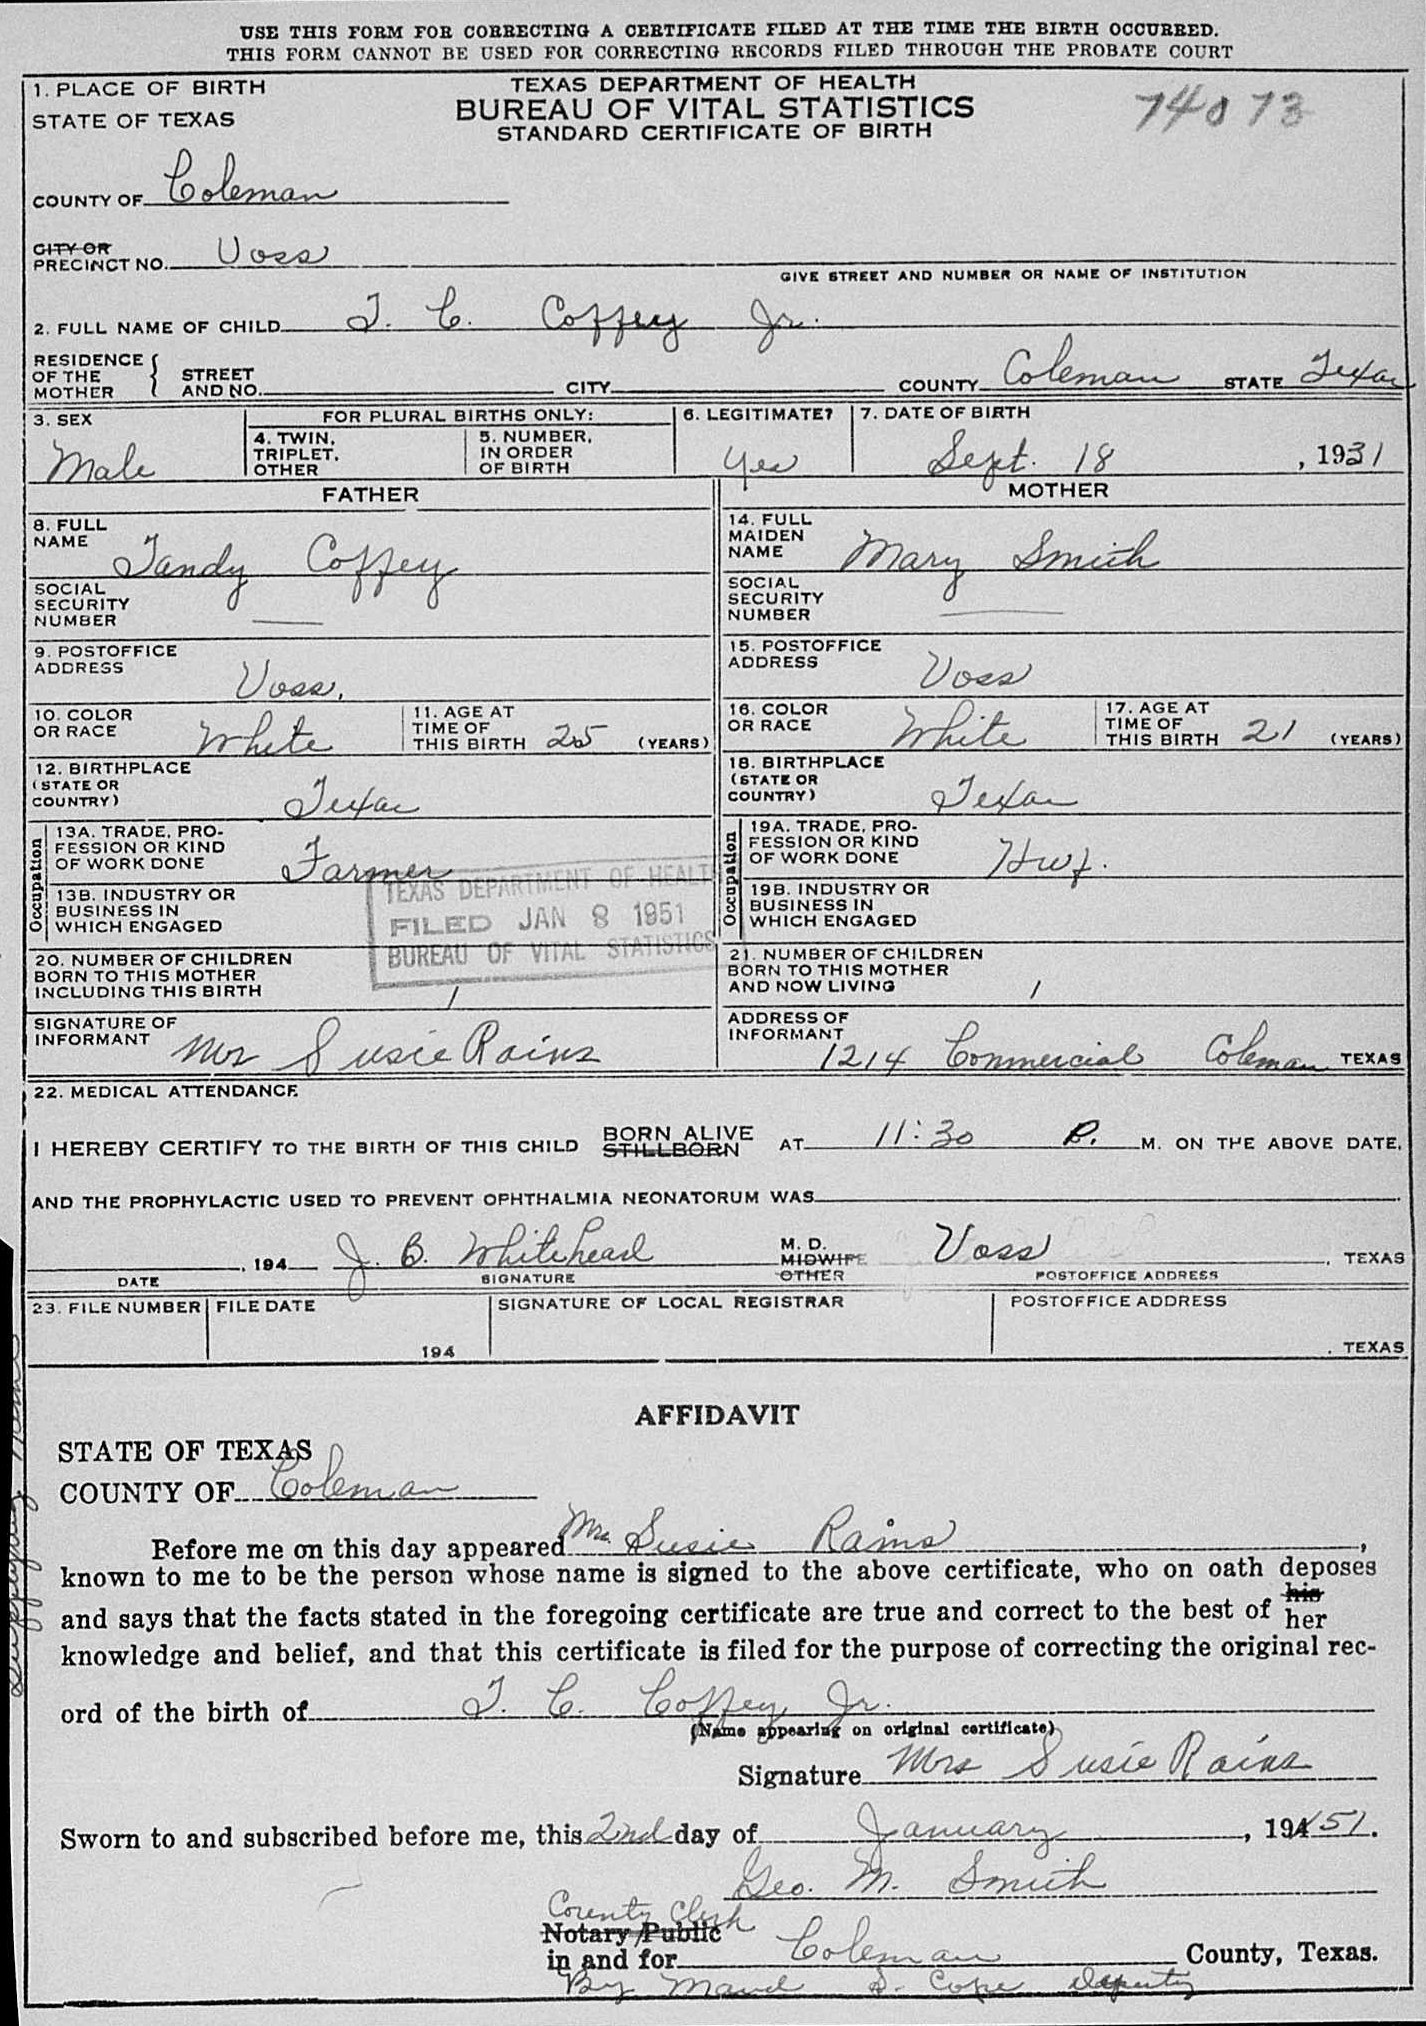 USE THIS FORM FOR CORRECTING A CERTIFICATE FILED AT THE TIME THE BIRTH OCCURRED.
THIS FORM CANNOT BE USED FOR CORRECTING RECORDS FILED THROUGH THE PROBATE COURT
1. PLACE OF BIRTH
STATE OF TEXAS
TEXAS DEPARTMENT OF HEALTH
BUREAU OF VITAL STATISTICS
STANDARD CERTIFICATE OF BIRTH
74073
COUNTY OF Coleman
CITY OR
PRECINCT NO. Voss
GIVE STREET AND NUMBER OR NAME OF INSTITUTION
2. FULL NAME OF CHILD T. C. Coffey Jr.
RESIDENCE OF THE MOTHER { STREET AND NO. CITY COUNTY Coleman STATE Texas
3. SEX
Male
FOR PLURAL BIRTHS ONLY:
4. TWIN, TRIPLET, OTHER
5. NUMBER, IN ORDER OF BIRTH
6. LEGITIMATE?
yes
7. DATE OF BIRTH
Sept. 18, 1931
FATHER
8. FULL NAME Tandy Coffey
SOCIAL SECURITY NUMBER —
9. POSTOFFICE ADDRESS Voss.
10. COLOR OR RACE White
11. AGE AT TIME OF THIS BIRTH 25 (YEARS)
12. BIRTHPLACE (STATE OR COUNTRY) Texas
Occupation
13A. TRADE, PROFESSION OR KIND OF WORK DONE Farmer
13B. INDUSTRY OR BUSINESS IN WHICH ENGAGED
TEXAS DEPARTMENT OF HEALTH
FILED JAN 8 1951
BUREAU OF VITAL STATISTICS
20. NUMBER OF CHILDREN BORN TO THIS MOTHER INCLUDING THIS BIRTH 1
SIGNATURE OF INFORMANT Mrs Susie Rains
MOTHER
14. FULL MAIDEN NAME Mary Smith
SOCIAL SECURITY NUMBER —
15. POSTOFFICE ADDRESS Voss
16. COLOR OR RACE White
17. AGE AT TIME OF THIS BIRTH 21 (YEARS)
18. BIRTHPLACE (STATE OR COUNTRY) Texas
Occupation
19A. TRADE, PROFESSION OR KIND OF WORK DONE Hwf.
19B. INDUSTRY OR BUSINESS IN WHICH ENGAGED
21. NUMBER OF CHILDREN BORN TO THIS MOTHER AND NOW LIVING 1
ADDRESS OF INFORMANT 1214 Commercial Coleman TEXAS
22. MEDICAL ATTENDANCE
I HEREBY CERTIFY TO THE BIRTH OF THIS CHILD BORN ALIVE STILLBORN AT 11:30 P. M. ON THE ABOVE DATE,
AND THE PROPHYLACTIC USED TO PREVENT OPHTHALMIA NEONATORUM WAS
, 194 J. B. Whitehead M. D. MIDWIFE OTHER Voss , TEXAS
DATE SIGNATURE POSTOFFICE ADDRESS
23. FILE NUMBER FILE DATE SIGNATURE OF LOCAL REGISTRAR POSTOFFICE ADDRESS
194 , TEXAS
AFFIDAVIT
STATE OF TEXAS
COUNTY OF Coleman
Before me on this day appeared Mrs. Susie Rains,
known to me to be the person whose name is signed to the above certificate, who on oath deposes
and says that the facts stated in the foregoing certificate are true and correct to the best of his her
knowledge and belief, and that this certificate is filed for the purpose of correcting the original rec-
ord of the birth of T. C. Coffey Jr.
(Name appearing on original certificate)
Signature Mrs Susie Rains
Sworn to and subscribed before me, this 2nd day of January, 194 51.
Geo. M. Smith
County Clerk
Notary Public
in and for Coleman County, Texas.
By Maud S. Cope Deputy